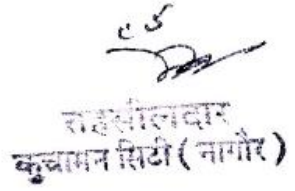 तहसीलदार
कुचामन सिटी ( नागौर )